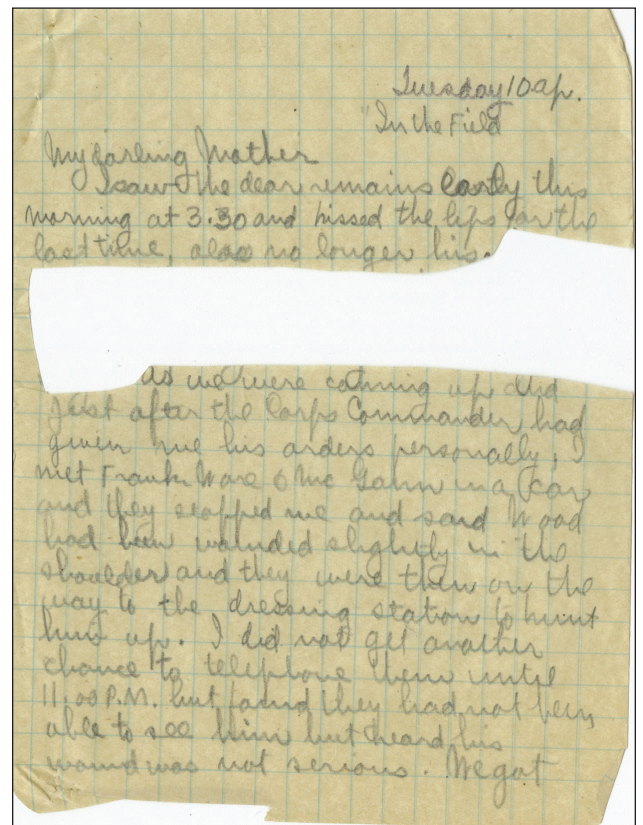 Tuesday 10 a.p.
"In the Field
My darling Mother
I saw the dear remains early this
morning at 3.30 and kissed the lips for the
last time, alas no longer his.
as we were coming up and
just after the Corps Commander had
given me his orders personally, I
met Frank Ware & Mc Gann in a car
and they stopped me and said Wood
had been wounded slightly in the
shoulder and they were then on the
way to the dressing station to hunt
him up. I did not get another
chance to telephone them until
11.00 P.M. but found they had not been
able to see him but heard his
wound was not serious. We got